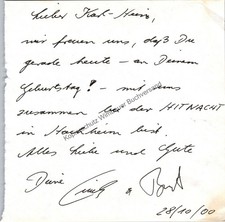 Lieber Karl-Heinz,
wir freuen uns, daß Du
gerade heute – an Deinem
Geburtstag! – mit uns
zusammen bei der HITNACHT
in Hochheim bist.
Alles Liebe und Gute
Deine Cindy & Bert
28/10/00